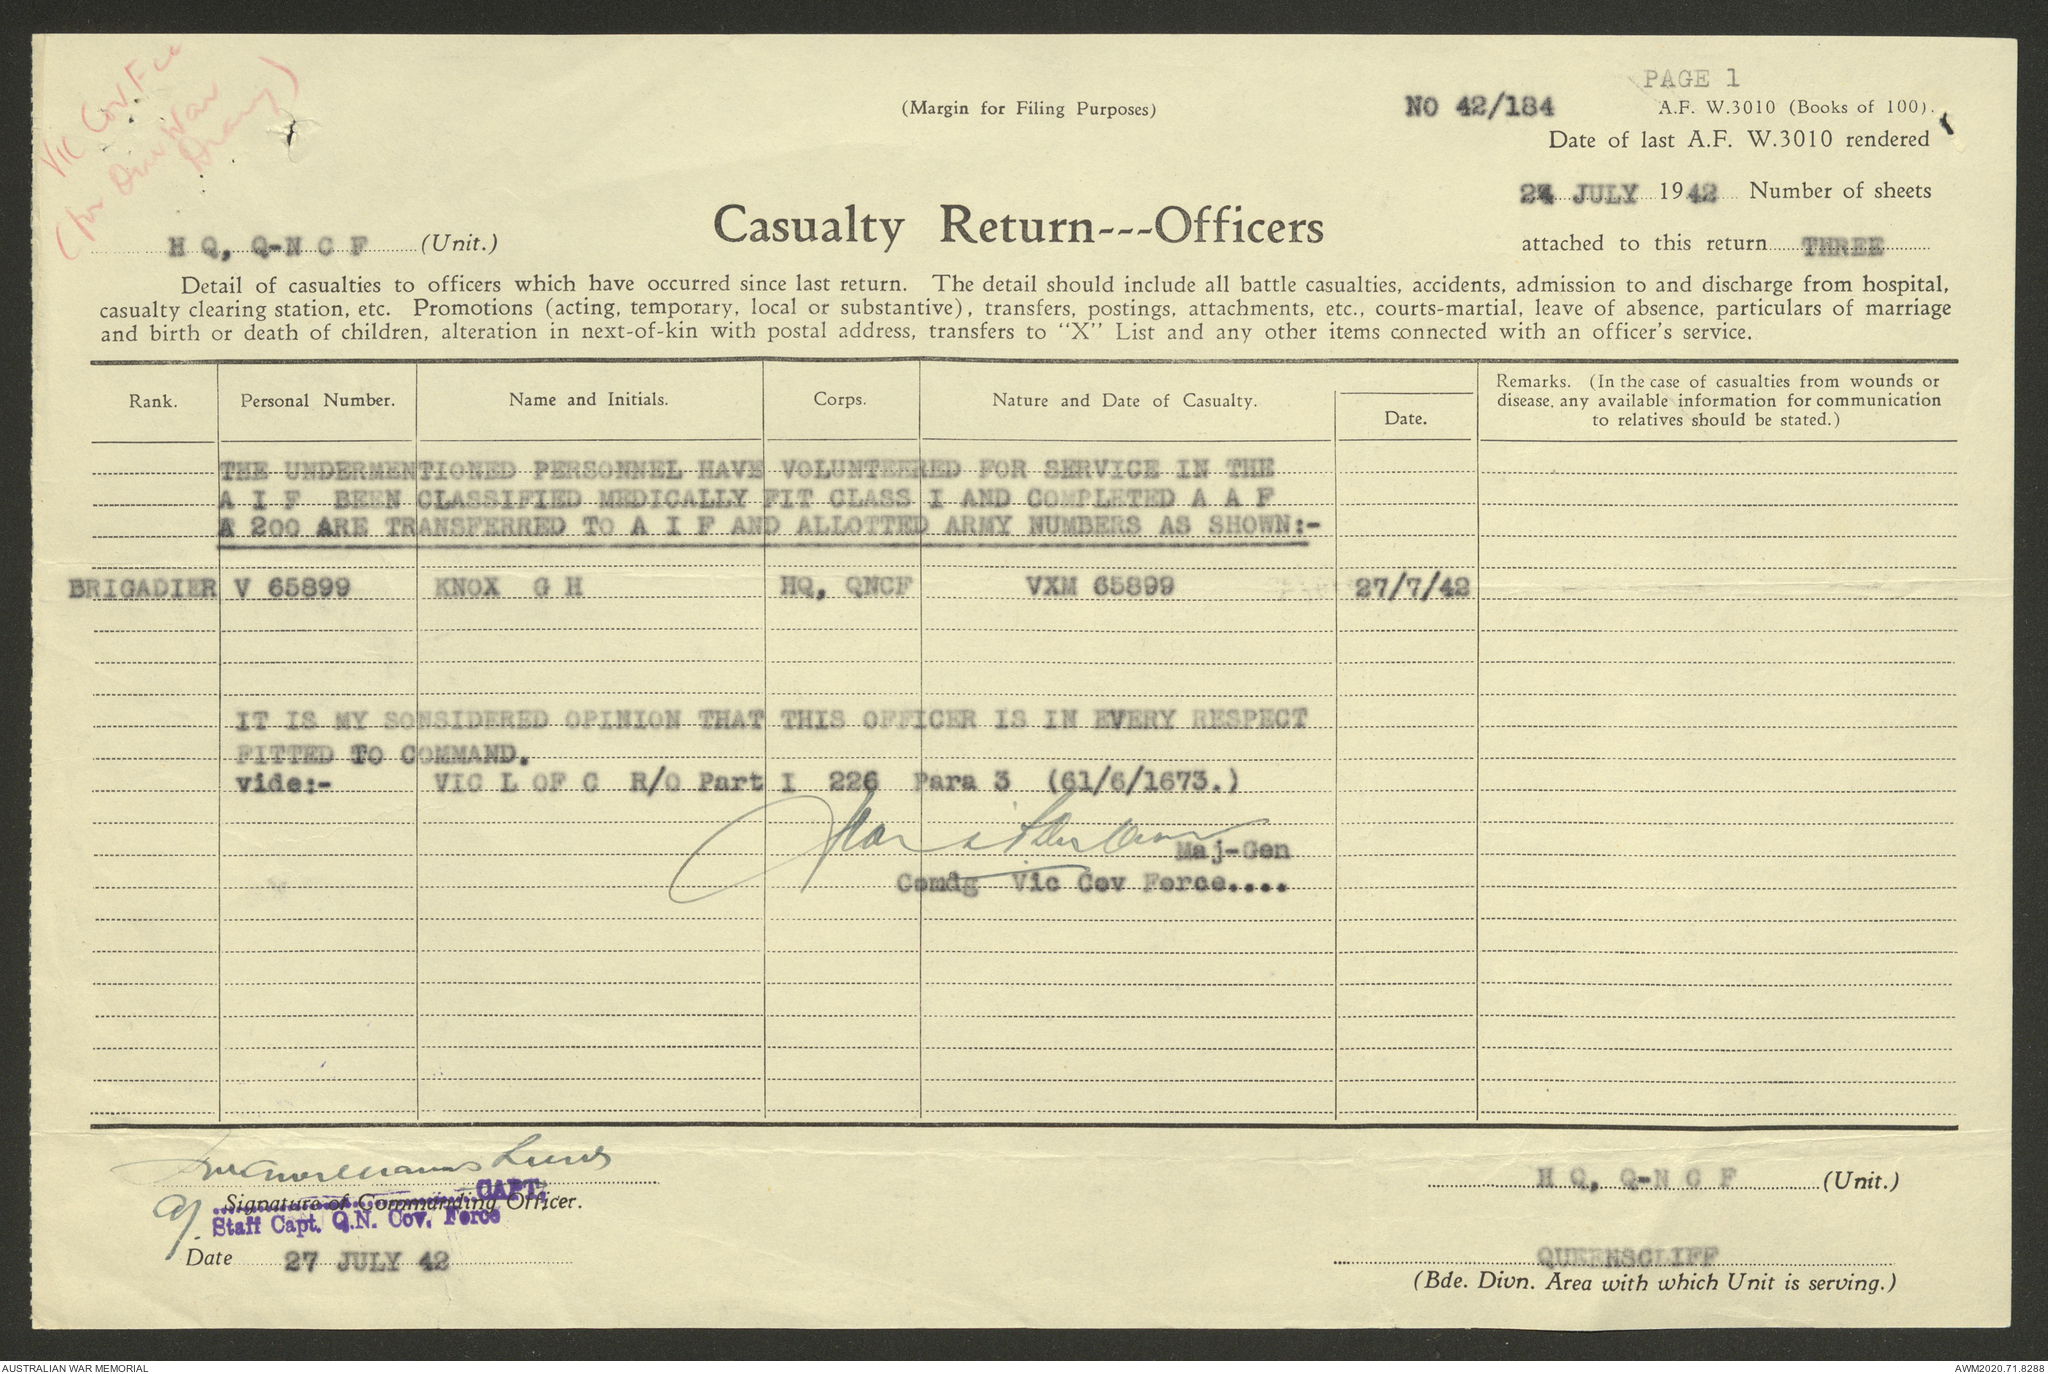 Vic Cov Fce
(for Own War
Diary)
PAGE 1
(Margin for Filing Purposes)
NO 42/184
A.F. W.3010 (Books of 100).
Date of last A.F. W.3010 rendered
24 JULY 1942 Number of sheets
attached to this return THREE
H Q, Q-N C F (Unit.)
Casualty Return---Officers
Detail of casualties to officers which have occurred since last return. The detail should include all battle casualties, accidents, admission to and discharge from hospital,
casualty clearing station, etc. Promotions (acting, temporary, local or substantive), transfers, postings, attachments, etc., courts-martial, leave of absence, particulars of marriage
and birth or death of children, alteration in next-of-kin with postal address, transfers to "X" List and any other items connected with an officer's service.
Rank. Personal Number. Name and Initials. Corps. Nature and Date of Casualty. Date.
Remarks. (In the case of casualties from wounds or
disease, any available information for communication
to relatives should be stated.)
THE UNDERMENTIONED PERSONNEL HAVE VOLUNTEERED FOR SERVICE IN THE
A I F BEEN CLASSIFIED MEDICALLY FIT CLASS I AND COMPLETED A A F
A 200 ARE TRANSFERRED TO A I F AND ALLOTTED ARMY NUMBERS AS SHOWN:-
BRIGADIER V 65899 KNOX G H HQ, QNCF VXM 65899 27/7/42
IT IS MY SONSIDERED OPINION THAT THIS OFFICER IS IN EVERY RESPECT
FITTED TO COMMAND.
vide:- VIC L OF C R/O Part I 226 Para 3 (61/6/1673.)
Maj-Gen
Comdg Vic Cov Force....
CAPT.
Signature of Commanding Officer.
Staff Capt. Q.N. Cov. Force
Date 27 JULY 42
H Q, Q-N C F (Unit.)
QUEENSCLIFF
(Bde. Divn. Area with which Unit is serving.)
AUSTRALIAN WAR MEMORIAL
AWM2020.71.8288